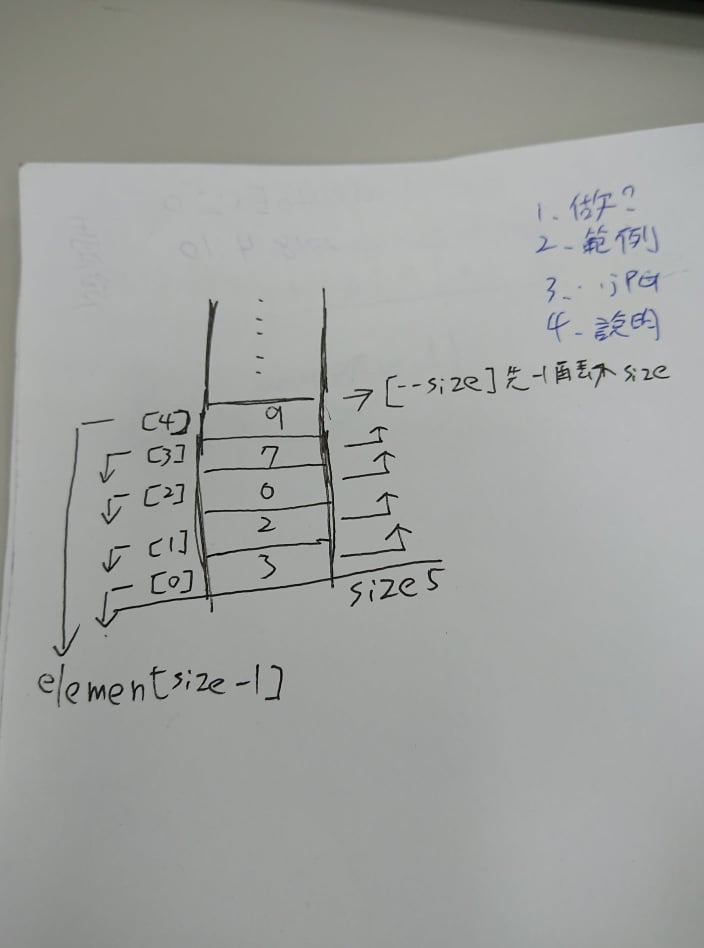 1. 做?
2. 範例
3. JPG
4. 說明
→ [--size] 先-1再丟 size
[4] 9
[3] 7
[2] 0
[1] 2
[0] 3
size 5
element[size-1]